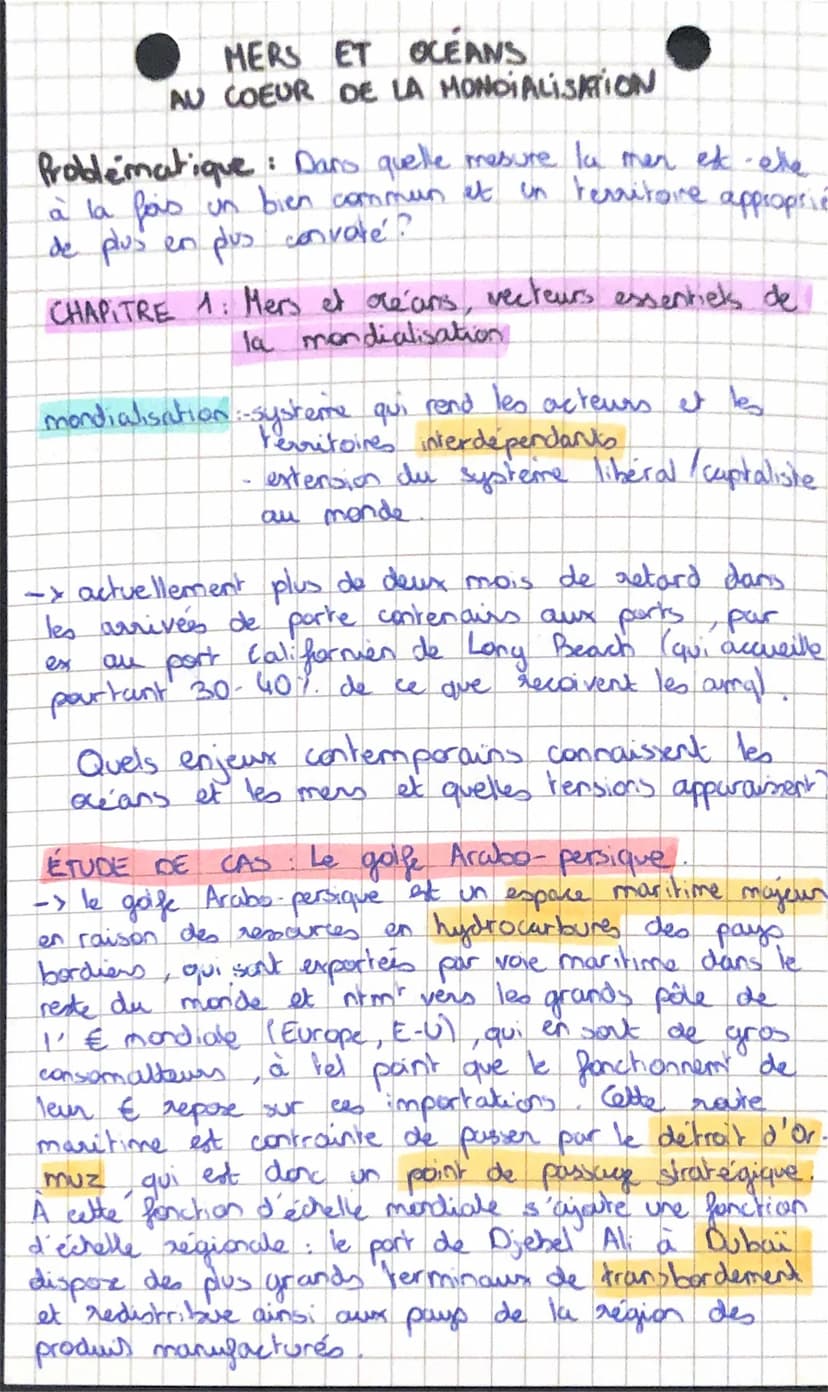 MERS ET OCÉANS
AU COEUR DE LA MONDIALISATION
Problématique : Dans quelle mesure la mer est-elle
à la fois un bien commun et un territoire approprié
de plus en plus convoité ?
CHAPITRE 1 : Mers et océans, vecteurs essentiels de
la mondialisation
mondialisation :- système qui rend les acteurs et les
territoires interdépendants
- extension du système libéral /capitaliste
au monde.
-> actuellement plus de deux mois de retard dans
les arrivées de porte contenairs aux ports, par
ex au port Californien de Long Beach (qui accueille
pourtant 30-40% de ce que reçoivent les amq).
Quels enjeux contemporains connaissent les
océans et les mers et quelles tensions apparaissent?
ÉTUDE DE CAS : Le golfe Arabo-persique.
-> le golfe Arabo-persique est un espace maritime majeur
en raison des ressources en hydrocarbures des pays
bordiers, qui sont exportés par voie maritime dans le
reste du monde et ntmt vers les grands pôle de
l' € mondiale (Europe, E-U), qui en sont de gros
consomatteurs, à tel point que le fonctionnemt de
leur € repose sur ces importations. Cette route
maritime est contrainte de passer par le détroit d'Or-
muz, qui est donc un point de passage stratégique.
À cette fonction d'échelle mondiale s'ajoute une fonction
d'échelle régionale : le port de Djebel Ali à Dubaï
dispose des plus grands terminaux de transbordement
et redistribue ainsi aux pays de la région des
produits manufacturés.